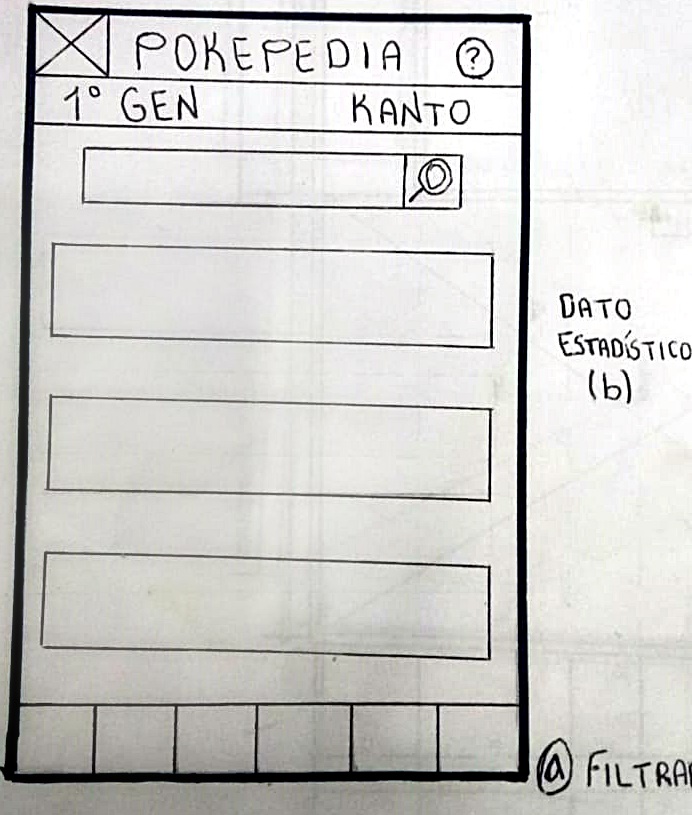 POKEPEDIA ?
1° GEN KANTO
DATO
ESTADÍSTICO
(b)
a FILTRAR